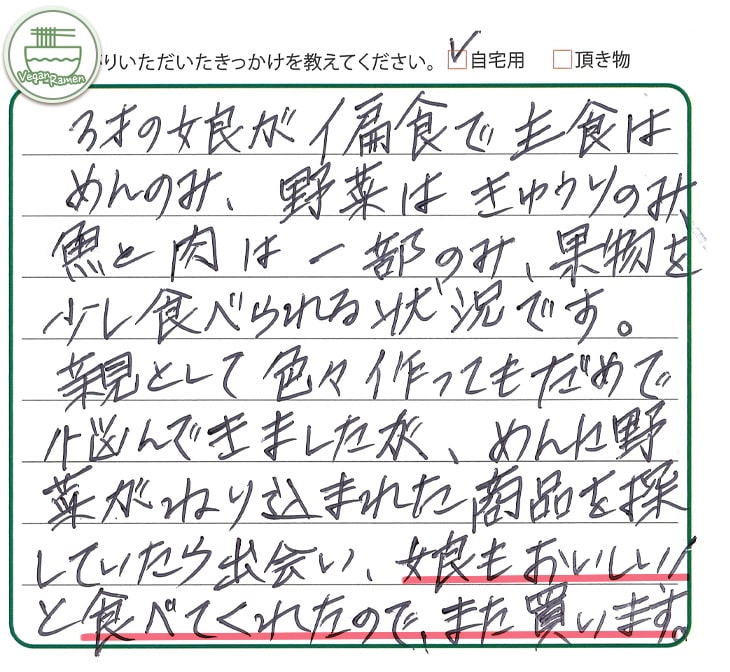 Vegan Ramen
がりいただいたきっかけを教えてください。 自宅用 頂き物
3才の娘が偏食で主食は
めんのみ、野菜はきゅうりのみ、
魚と肉は一部のみ、果物を
少し食べられる状況です。
親として色々作ってもだめで
悩んできましたが、めんに野
菜がねり込まれた商品を探
していたら出会い、娘もおいしい!
と食べてくれたので、また買います。